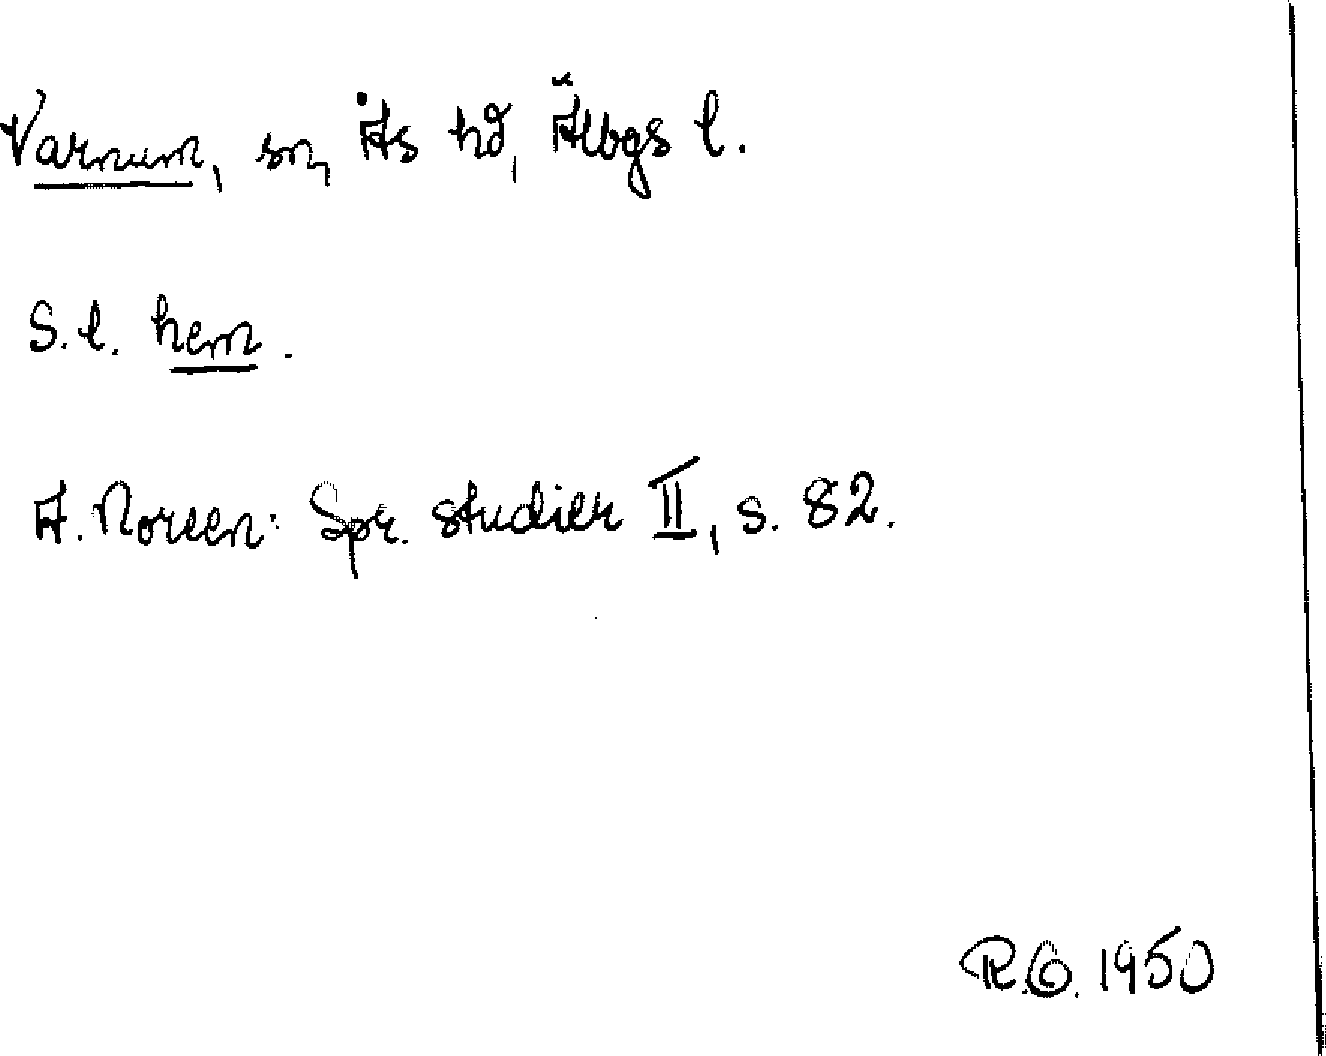 Varnum, sn, Ås hd, Älvbgs l.
S. l. hem.
A. Noreen: Spr. studier II, s. 82.
R.G. 1950